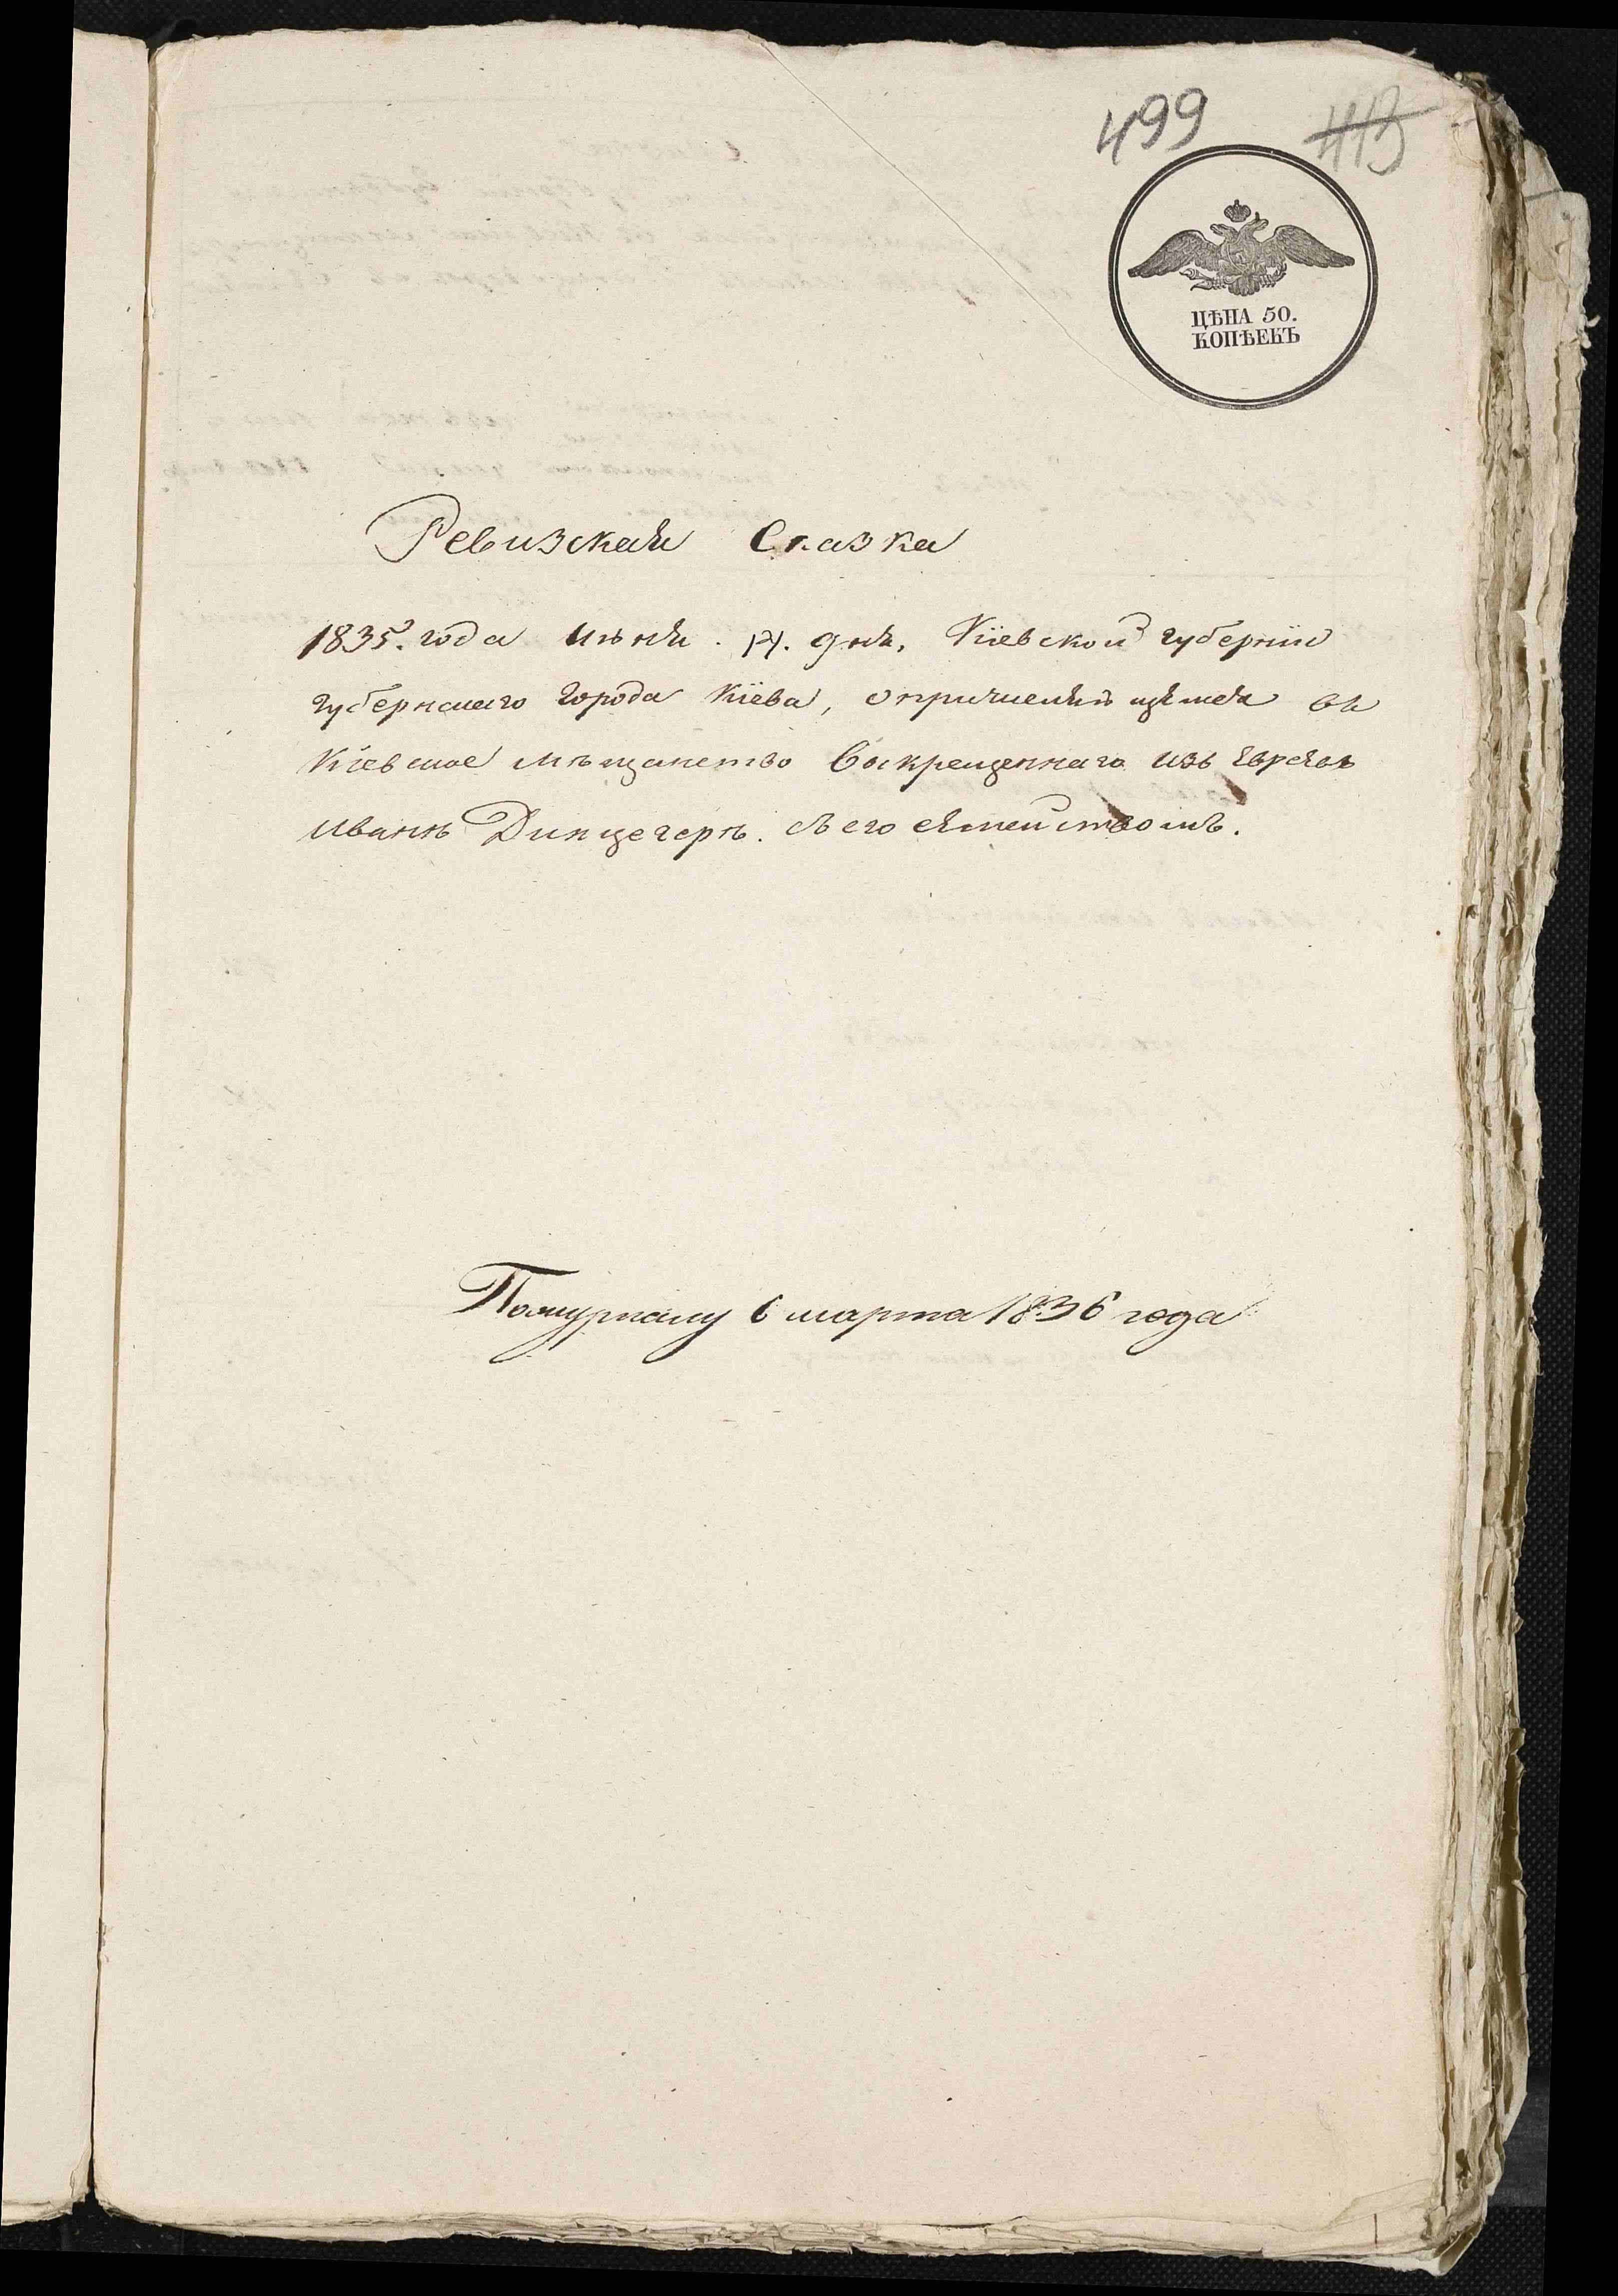 499
113
ЦѢНА 50.
КОПѢЕКЪ
Ревизская Сказка
1835. года Июня. 14. дня, Кіевской губерніи
губернскаго города Кіева, о причисляющемся въ
Кіевское мѣщанство воскрещеннаго изъ Евреевъ
Иванъ Динцегеръ. съ его семействомъ.
Пожурналу 6 марта 1836 года